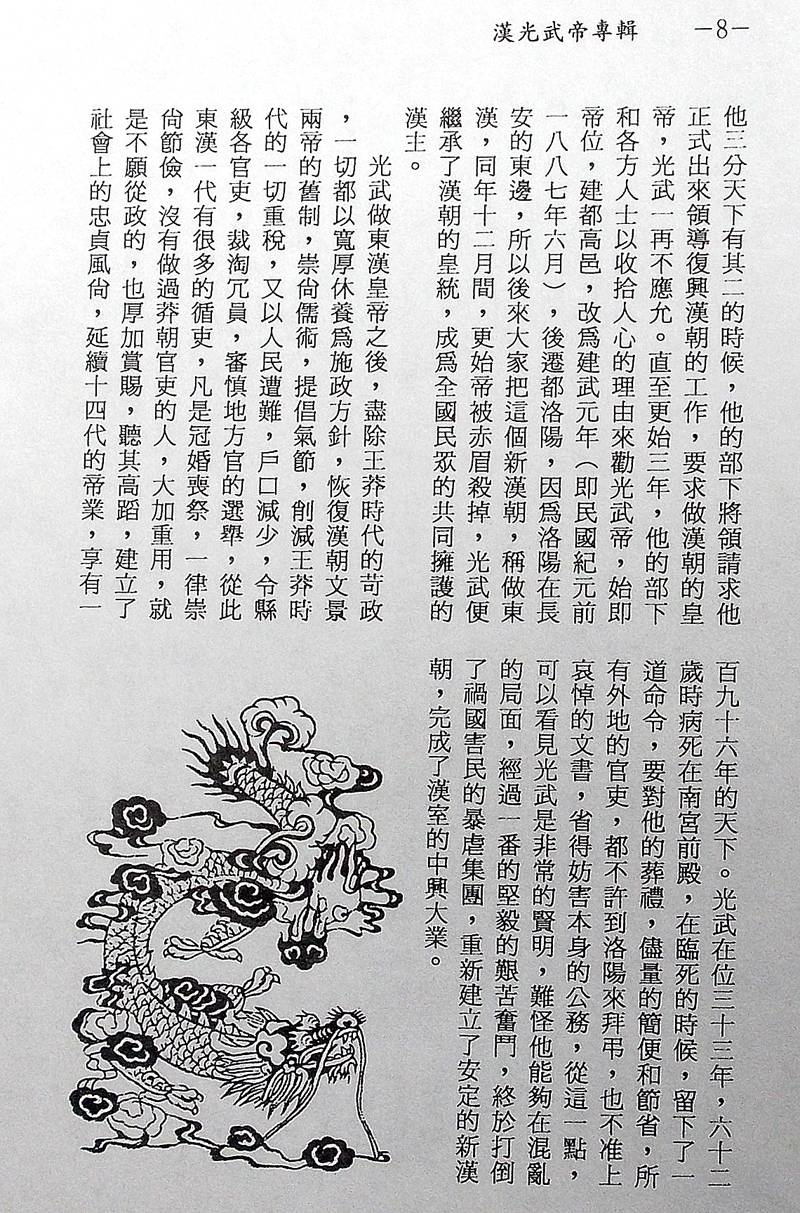 漢光武帝專輯 —8—
他三分天下有其二的時候，他的部下將領請求他
正式出來領導復興漢朝的工作，要求做漢朝的皇
帝，光武一再不應允。直至更始三年，他的部下
和各方人士以收拾人心的理由來勸光武帝，始即
帝位，建都高邑，改爲建武元年（即民國紀元前
一八八七年六月），後遷都洛陽，因爲洛陽在長
安的東邊，所以後來大家把這個新漢朝，稱做東
漢，同年十二月間，更始帝被赤眉殺掉，光武便
繼承了漢朝的皇統，成爲全國民眾的共同擁護的
漢主。
光武做東漢皇帝之後，盡除王莽時代的苛政
，一切都以寬厚休養爲施政方針，恢復漢朝文景
兩帝的舊制，崇尙儒術，提倡氣節，削減王莽時
代的一切重稅，又以人民遭難，戶口減少，令縣
級各官吏，裁淘冗員，審慎地方官的選舉，從此
東漢一代有很多的循吏，凡是冠婚喪祭，一律崇
尙節儉，沒有做過莽朝官吏的人，大加重用，就
是不願從政的，也厚加賞賜，聽其高蹈，建立了
社會上的忠貞風尙，延續十四代的帝業，享有一
百九十六年的天下。光武在位三十三年，六十二
歲時病死在南宮前殿，在臨死的時候，留下了一
道命令，要對他的葬禮，儘量的簡便和節省，所
有外地的官吏，都不許到洛陽來拜弔，也不准上
哀悼的文書，省得妨害本身的公務，從這一點，
可以看見光武是非常的賢明，難怪他能夠在混亂
的局面，經過一番的堅毅的艱苦奮鬥，終於打倒
了禍國害民的暴虐集團，重新建立了安定的新漢
朝，完成了漢室的中興大業。